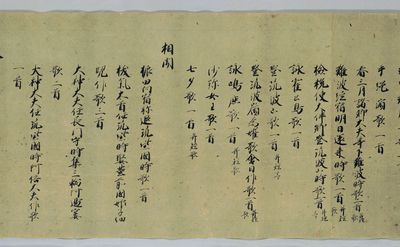 手綱濱歌一首
春三月諸卿大夫等下難波時歌二首并短歌
難波經宿明日還来時歌一首并短歌
檢税使大伴卿登筑波山時歌一首并短歌
詠霍公鳥一首并短歌
登筑波山歌一首并短歌
登筑波嶺為嬥歌會日作歌一首并短歌
詠鳴鹿歌一首并短歌
沙弥女王歌一首
七夕歌一首并短歌
相聞
振田向宿祢退筑紫國時歌一首
抜氣大首任筑紫時娶豊前國娘子紐
兒作歌三首
大神大夫任長門守時集三輪河邊宴
歌二首
大神大夫任筑紫國時阿倍大夫作歌
一首